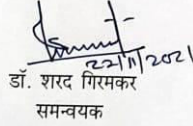 22/11/2021
डॉ. शरद गिरमकर
समन्वयक